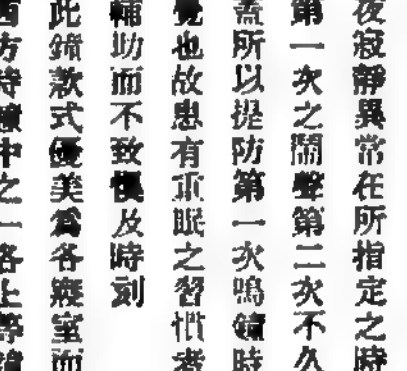 夜寂靜異常在所指定之時
第一次之鬧聲第二次不久
蓋所以提防第一次鳴鐘時
覺也故患有重眠之習慣者
輔助而不致悞及時刻
此鐘款式優美爲各寢室而
西方時鐘中之一各上等鐘